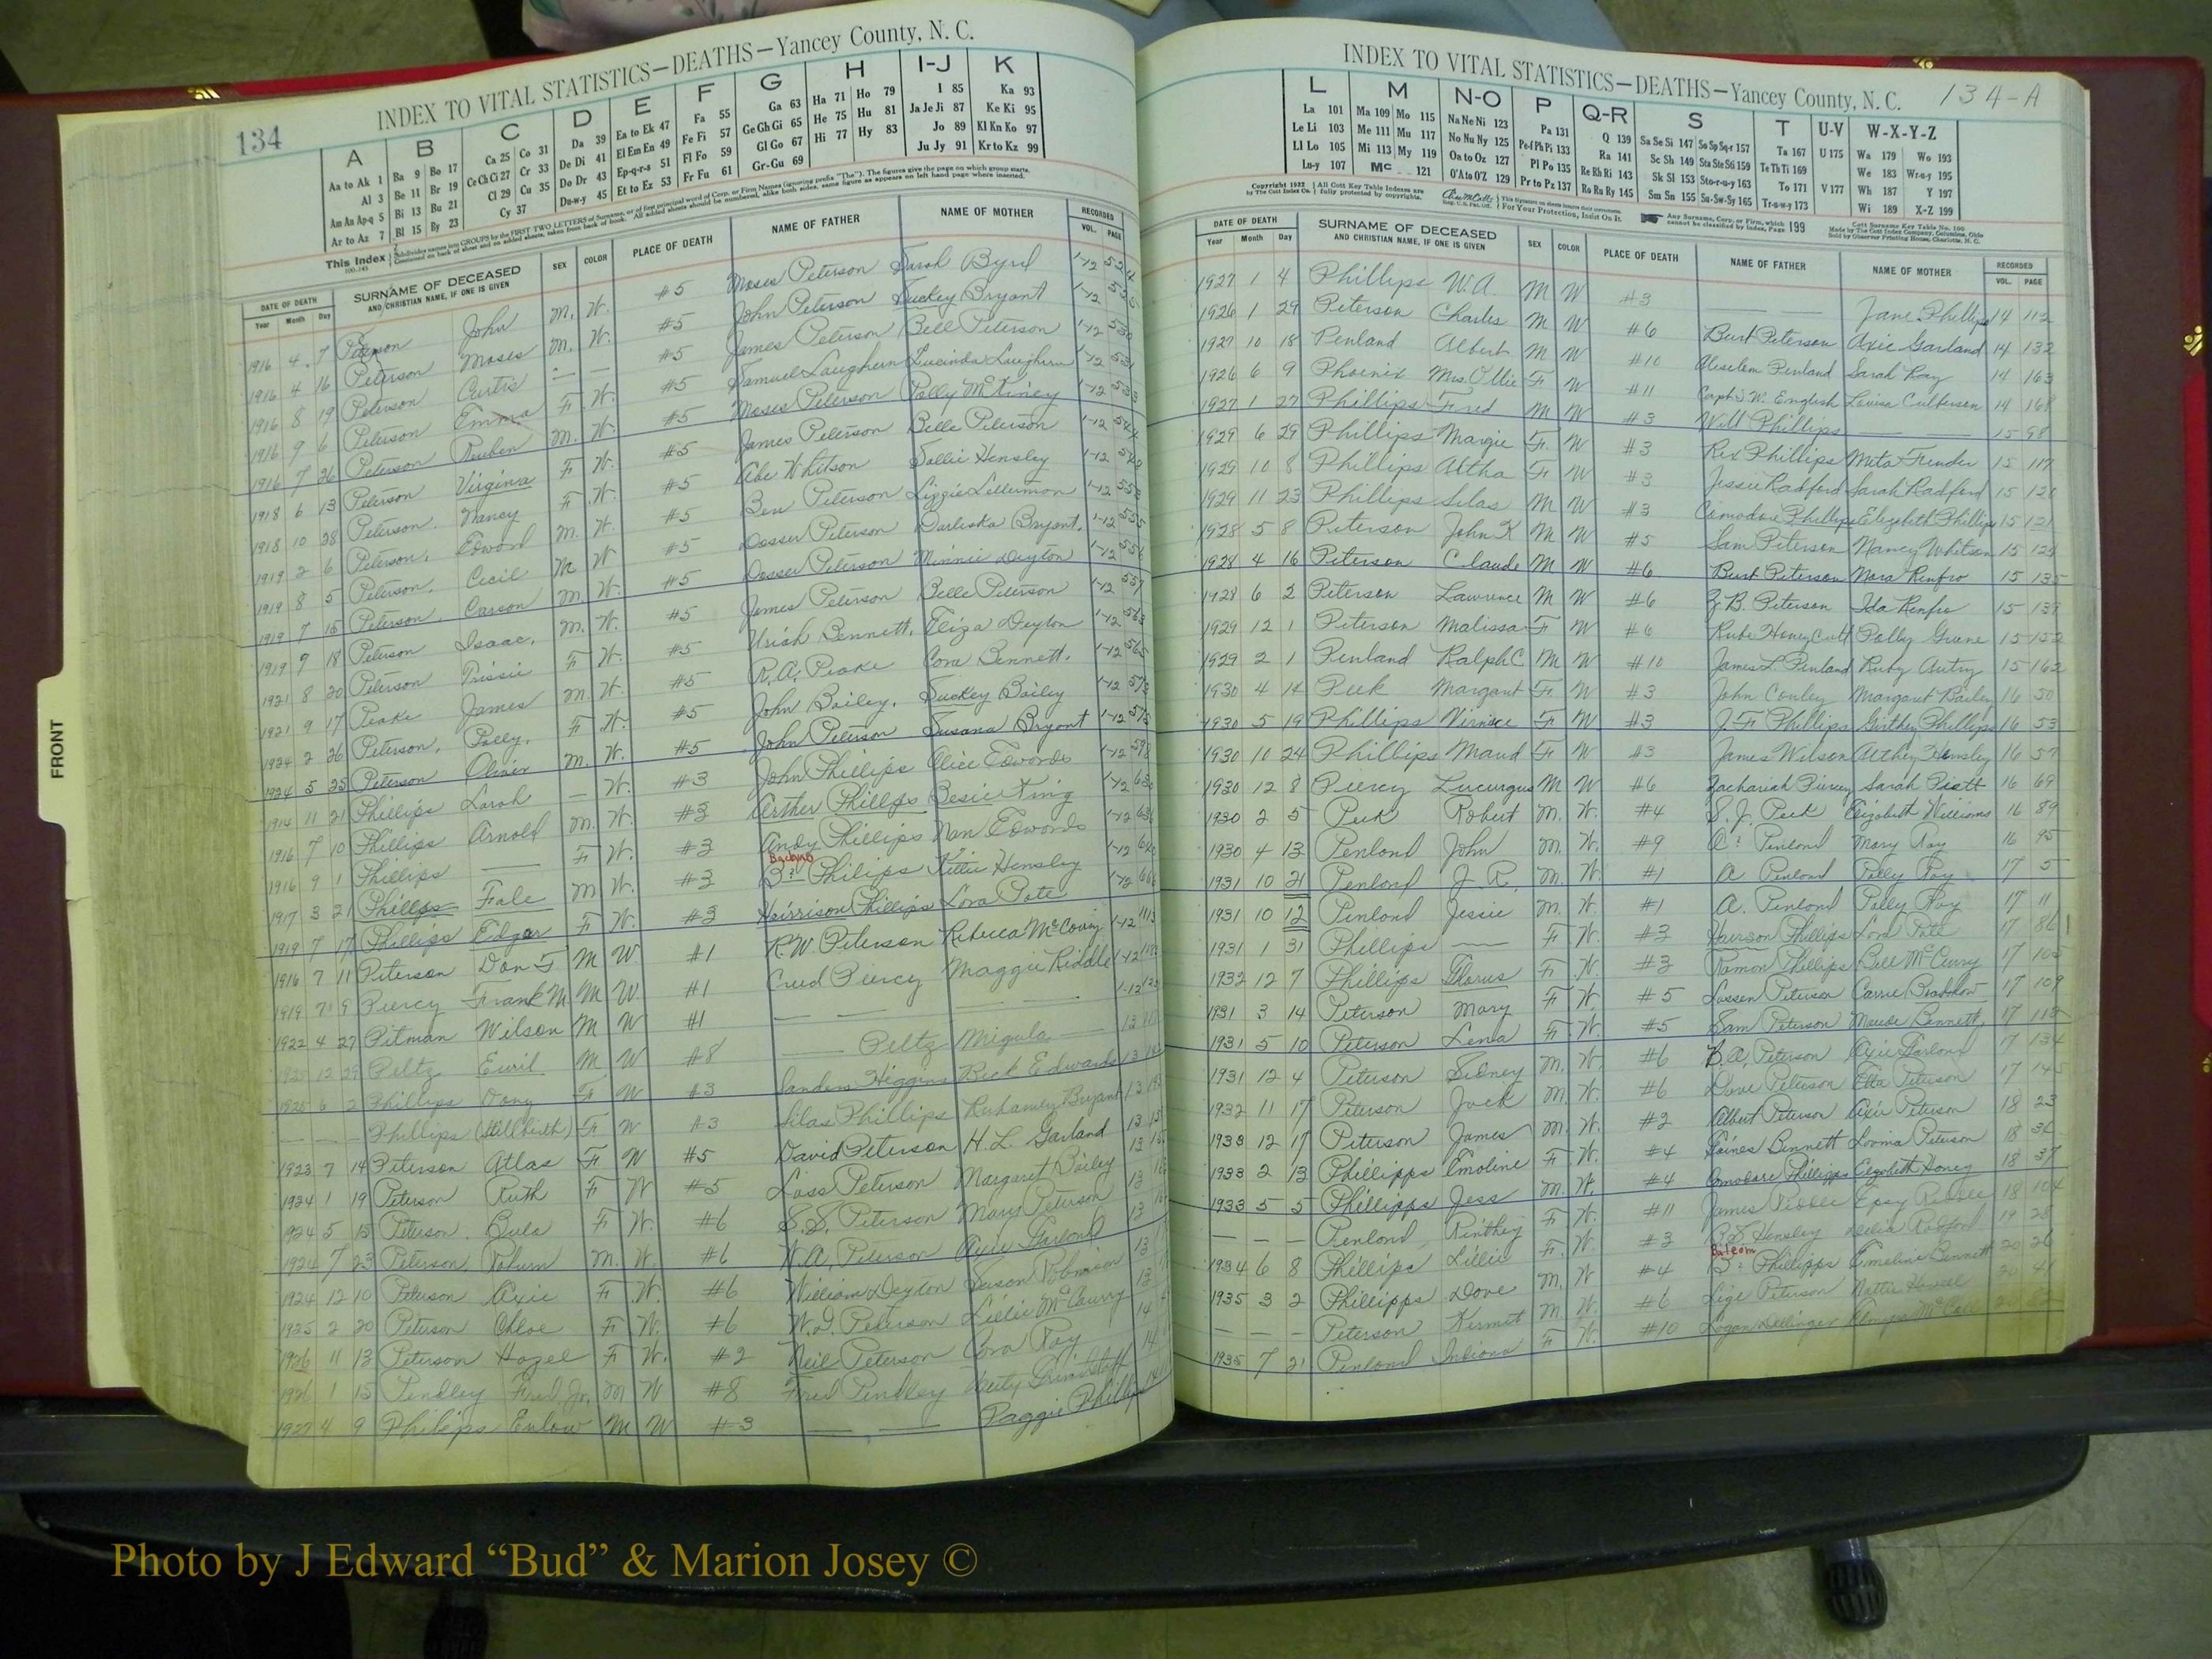 134
INDEX TO VITAL STATISTICS—DEATHS—Yancey County, N. C.
A B C D E F G H I-J K
Aa to Ak 1 Ba 9 Bo 17 Ca 25 Co 31 Da 39 Ea to Ek 47 Fa 55 Ga 63 Ha 71 Ho 79 I 85 Ka 93
Al 3 Be 11 Br 19 Ce Ch Ci 27 Cr 33 De Di 41 El Em En 49 Fe Fi 57 Ge Gh Gi 65 He 75 Hu 81 Ja Je Ji 87 Ke Ki 95
Am An Ap-q 5 Bi 13 Bu 21 Cl 29 Cu 35 Do Dr 43 Ep-q-r-s 51 Fl Fo 59 Gl Go 67 Hi 77 Hy 83 Jo 89 Kl Kn Ko 97
Ar to Az 7 Bl 15 By 23 Cy 37 Du-w-y 45 Et to Ez 53 Fr Fu 61 Gr-Gu 69 Ju Jy 91 Kr to Kz 99
This Index
DATE OF DEATH SURNAME OF DECEASED AND CHRISTIAN NAME, IF ONE IS GIVEN SEX COLOR PLACE OF DEATH NAME OF FATHER NAME OF MOTHER RECORDED
Year Month Day VOL. PAGE
1916 4 7 John M. W. #5 Moses Peterson Sarah Byrd 1-12
1916 4 16 Peterson Moses M. W. #5 John Peterson Suckey Bryant 1-12
1916 8 19 Peterson Curtis — — #5 James Peterson Bell Peterson 1-12
1916 9 6 Peterson Emma F. W. #5 Samuel Laughern Lucinda Laughern 1-12
1916 7 26 Peterson Reuben M. W. #5 Moses Peterson Polly McKiney 1-12
1918 6 13 Peterson Virginia F W. #5 James Peterson Belle Peterson 1-12
1918 10 28 Peterson. Nancy F. W. #5 Abe Whitson Sallie Hensley 1-12
1919 2 6 Peterson, Edward M. W. #5 Ben Peterson Lizzie Letterman 1-12
1919 8 5 Peterson, Cecil M W #5 Dosser Peterson Darliska Bryant. 1-12
1919 7 15 Peterson, Carson M. W. #5 Dosser Peterson Minnie Deyton 1-12
1919 9 18 Peterson Isaac. M. W. #5 James Peterson Belle Peterson 1-12 557
1921 8 20 Peterson Trissie F W. #5 Uriah Bennett. Eliza Deyton 1-12
1921 9 17 Peake James M. W. #5 R.A. Peake Cora Bennett. 1-12
1924 2 26 Peterson, Polly. F. W. #5 John Bailey. Suckey Bailey 1-12
1924 5 25 Peterson Oliver M. W. #5 John Peterson Susana Bryant 1-12
1914 11 21 Phillips Sarah — W. #3 John Phillips Alice Edwards 1-12
1916 7 10 Phillips Arnold M. W. #3 Arther Phillips Besie King 1-12
1916 9 1 Phillips — F W. #3 Andy Phillips Nan Edwards 1-12
1917 3 21 Phillips Fale M W. #3 Philips Kittie Hensley 1-12
1919 7 17 Phillips Edgar F W. #3 Hairrison Phillips Lora Pate 1-12
1916 7 11 Peterson Don F M W #1 R.W. Peterson Rebecca McCoury 1-12
1919 7 9 Piercy Frank M. M W. #1 Cred Piercy Maggie Riddle 1-12
1922 4 27 Pitman Wilson M W #1 — — 1-12
12 29 Peltz Euril M W #8 — Peltz Migula — 13
1925 6 2 Phillips Dany F W #3 Sanders Higgins Rick Edwards 13
— — — Phillips (Stillbirth) F W #3 Silas Phillips Bryant 13
1923 7 14 Peterson Atlas F W #5 David Peterson H.L. Garland 13
1924 1 19 Peterson Ruth F W #5 Loss Peterson Margaret Bailey 13
1924 5 15 Peterson. Bula F W. #6 S.S. Peterson Mary Peterson 13
1924 7 23 Peterson M. W. #6 W.A. Peterson Axie Garland 13
1924 12 10 Peterson Axie F. W. #6 William Deyton Susan Robinson 13
1925 2 20 Peterson Chloe F W. #6 W.D. Peterson Lillie McCurry 14
1926 11 13 Peterson Hazel F W. #2 Neil Peterson Cora Ray 14
1926 1 15 Pendley Fred Jr. M W #8 Fred Pendley 14
1927 4 9 Philips Enlow M W #3 — —
FRONT
INDEX TO VITAL STATISTICS—DEATHS—Yancey County, N. C. 134-A
L M N-O P Q-R S T U-V W-X-Y-Z
La 101 Ma 109 Mo 115 Na Ne Ni 123 Pa 131 Q 139 Sa Se Si 147 So Sp Sq-r 157 Ta 167 U 175 Wa 179 Wo 193
Le Li 103 Me 111 Mu 117 No Nu Ny 125 Pe-f Ph Pi 133 Ra 141 Sc Sh 149 Sta Ste Sti 159 Te Th Ti 169 We 183 Wr-u-y 195
Ll Lo 105 Mi 113 My 119 Oa to Oz 127 Pl Po 135 Re Rh Ri 143 Sk Sl 153 Sto-r-u-y 163 To 171 V 177 Wh 187 Y 197
Lu-y 107 Mc 121 O'A to O'Z 129 Pr to Pz 137 Ro Ru Ry 145 Sm Sn 155 Su-Sw-Sy 165 Tr-u-w-y 173 Wi 189 X-Z 199
Copyright 1932 by The Cott Index Co. All Cott Key Table Indexes are fully protected by copyrights. For Your Protection, Insist On It. Any Surname, Corp. or Firm, which cannot be classified by Index, Page 199
DATE OF DEATH SURNAME OF DECEASED AND CHRISTIAN NAME, IF ONE IS GIVEN SEX COLOR PLACE OF DEATH NAME OF FATHER NAME OF MOTHER RECORDED
Year Month Day VOL. PAGE
1927 1 4 Phillips W.A. M W #3 — — Jane Phillips 14 112
1926 1 29 Peterson Charles M W #6 Burt Peterson Axie Garland 14 132
1927 10 18 Penland Albert M W #10 Penland Sarah Ray 14 163
1926 6 9 Phoenix Mrs. Ollie F W #11 Capt. W. English Louisa Culberson 14 168
1927 1 27 Phillips Fred M W #3 Will Phillips — 15 98
1929 6 29 Phillips Margie F. W #3 Rex Phillips Meta Frender 15 117
1929 10 8 Phillips Altha F W #3 Jessie Radford Sarah Radford 15 120
1929 11 23 Phillips Silas M W #3 Comodore Phillips Elizabeth Phillips 15 121
1928 5 8 Peterson John K M W #5 Sam Peterson Nancy Whitson 15 125
1928 4 16 Peterson Claude M W #6 Burt Peterson Nora Renfro 15 135
1928 6 2 Peterson Lawrence M W #6 Z.B. Peterson Ida Renfro 15 138
1929 12 1 Peterson Malissa F W #6 Rube Honeycutt Polly Greene 15 152
1929 2 1 Penland Ralph C M W #10 James L. Penland Ruby Autry 15 162
1930 4 14 Peek Margaret F W #3 John Conley Margaret Bailey 16 50
1930 5 19 Phillips F W #3 J.F. Phillips Girthey Phillips 16 53
1930 10 24 Phillips Maud F W #3 James Wilson Hensley 16 57
1930 12 8 Piercy Lucurgus M W #6 Zachariah Piercy Sarah 16 69
1930 2 5 Peek Robert M. W. #4 S.J. Peek Elizabeth Williams 16 89
1930 4 13 Penlond John M. W. #9 Penlond Mary Ray 16 95
1931 10 21 Penlond J.R. M. W. #1 A Penlond Polly Ray 17 5
1931 10 12 Penlond Jessie M. W. #1 A. Penlond Polly Ray 17 11
1931 1 31 Phillips — F W. #3 Harrison Phillips Lora Pate 17 86
1932 12 7 Phillips Glorus F W. #3 Ramon Phillips Bell McCurry 17 105
1931 3 14 Peterson Mary F W #5 Lossen Peterson Carrie Bradshaw 17 109
1931 5 10 Peterson Lena F W. #5 Sam Peterson Maude Bennett 17 115
1931 12 4 Peterson Sidney M. W. #6 B.A. Peterson Axie Garland 17 134
1932 11 17 Peterson Jack M. W. #6 Dove Peterson Etta Peterson 17
1933 12 17 Peterson James M. W. #2 Albert Peterson Axie Peterson 18 23
1933 2 13 Phillipps Emoline F W. #4 Gaines Bennett Lovina Peterson 18
1933 5 5 Phillipps Jess M. W. #4 Comodore Phillipps Elizabeth Honey 18 37
— — — Penlond F W. #11 James Riddle 18 104
1934 6 8 Phillips Lillie F. W. #3 Hensley Radford 19 28
1935 3 2 Phillipps Dove M. W #4 Phillipps Emeline Bennett 20 26
— — — Peterson Kermit M W. #6 Lige Peterson Hattie
1935 7 21 Penlond Indiana F W. #10 Logan Dellinger
Photo by J Edward “Bud” & Marion Josey ©